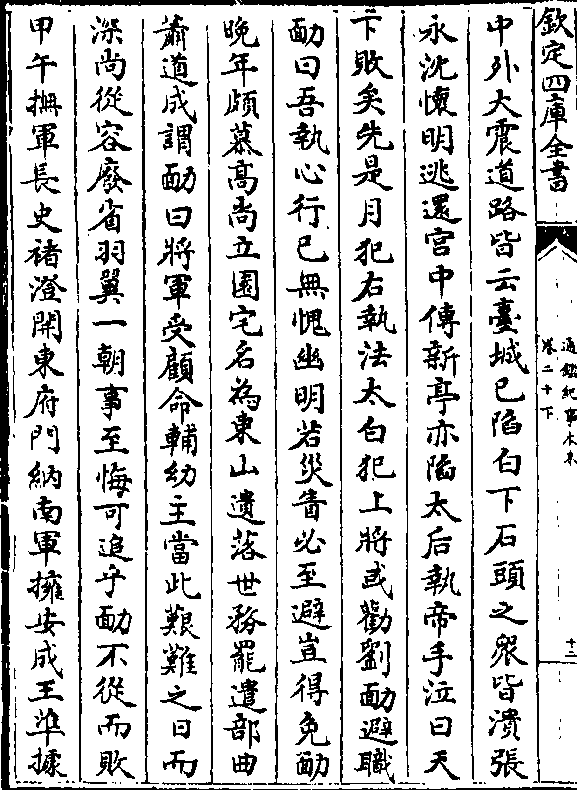 欽定四庫全書
通鑑紀事本末
卷二十下
十二
中外大震道路皆云臺城已陷白下石頭之衆皆潰張
永沈懷明逃還宮中傳新亭亦陷太后執帝手泣曰天
下敗矣先是月犯右執法太白犯上將或勸劉勔避職
勔曰吾執心行已無愧幽明若災眚必至避豈得免勔
晚年頗慕高尚立園宅名為東山遺落世務罷遣部曲
蕭道成謂勔曰將軍受顧命輔幼主當此艱難之日而
深尚從容廢省羽翼一朝事至悔可追乎勔不從而敗
甲午撫軍長史褚澄開東府門納南軍擁安成王準據